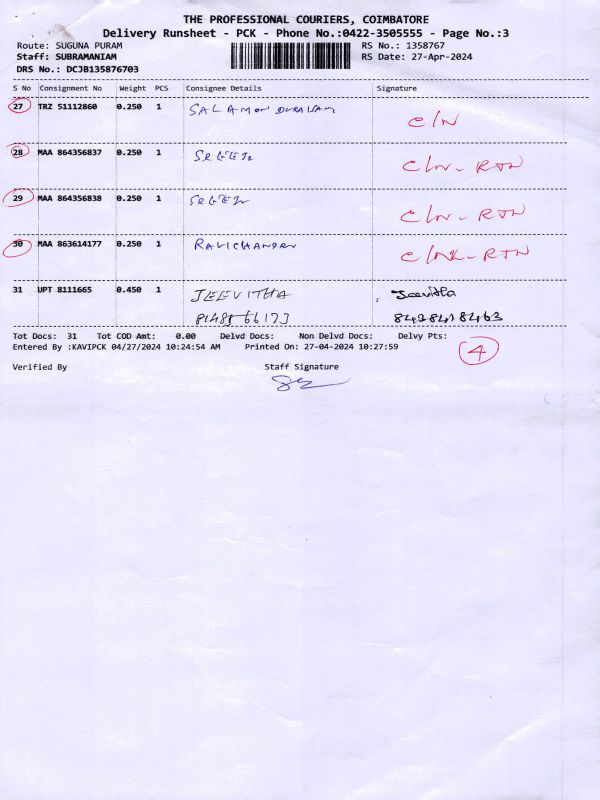 THE PROFESSIONAL COURIERS, COIMBATORE
Delivery Runsheet - PCK - Phone No.:0422-3505555 - Page No.:3
Route: SUGUNA PURAM RS No.: 1358767
Staff: SUBRAMANIAM RS Date: 27-Apr-2024
DRS No.: DCJB135876703
S No Consignment No Weight PCS Consignee Details Signature
27 TRZ 51112860 0.250 1 SALAMON DURAISAM
C/N
28 MAA 864356837 0.250 1
C/N - RTN
29 MAA 864356838 0.250 1
C/N - RTN
30 MAA 863614177 0.250 1 RAVICHANDRN
C/N - RTN
31 UPT 8111665 0.450 1 JEEVITHA Jeevitha
Tot Docs: 31 Tot COD Amt: 0.00 Delvd Docs: Non Delvd Docs: Delvy Pts:
Entered By :KAVIPCK 04/27/2024 10:24:54 AM Printed On: 27-04-2024 10:27:59
4
Verified By Staff Signature